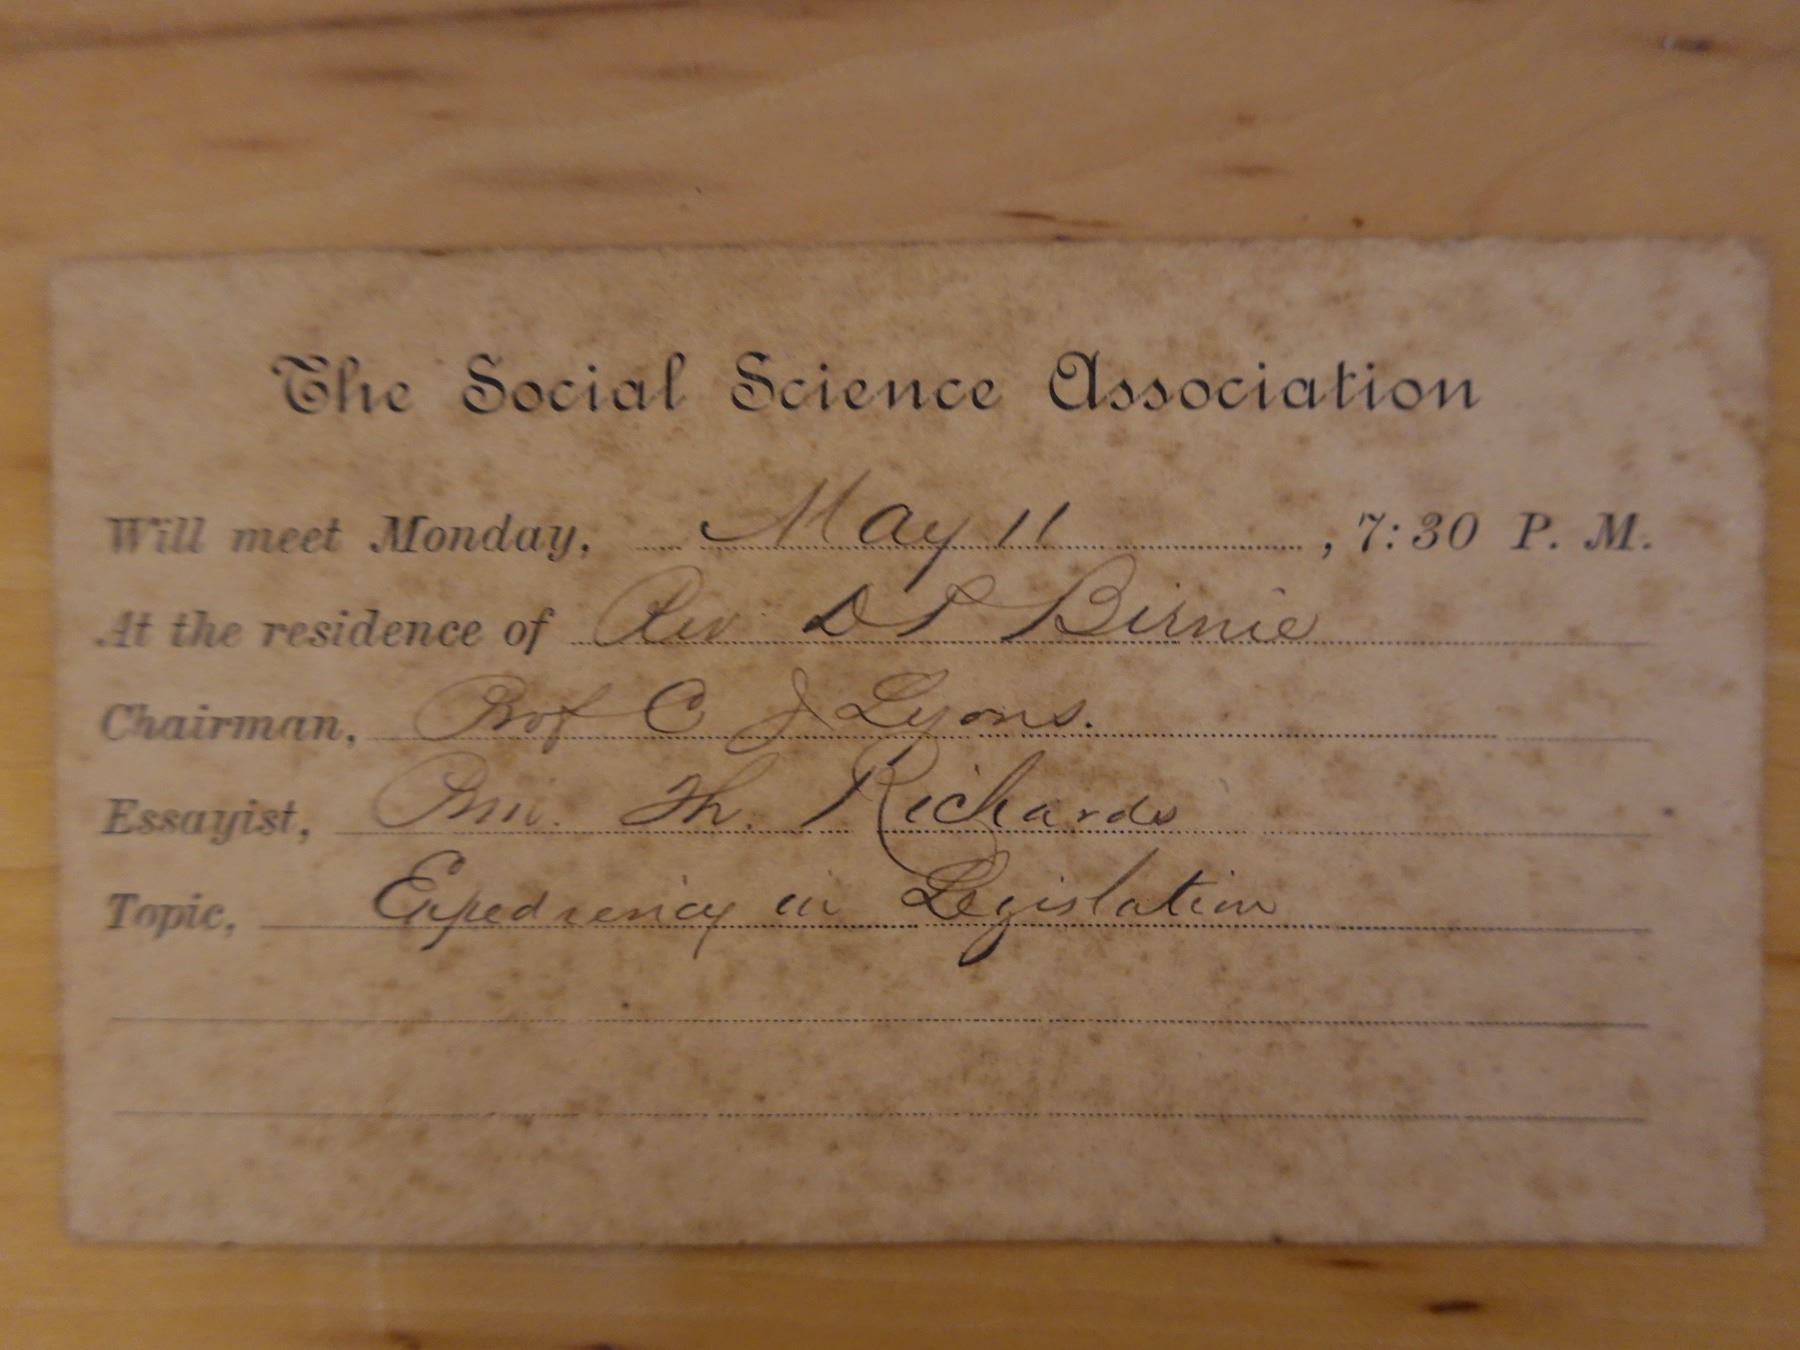 The Social Science Association
Will meet Monday, May 11, 7:30 P. M.
At the residence of Rev. D P Birnie
Chairman, Prof C J Lyons.
Essayist, Th. Richards
Topic, Expediency in Legislation